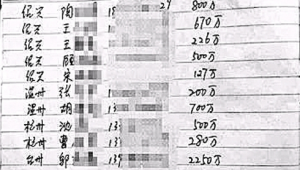 绍兴 陶 18 29 800万
绍兴 王 670万
绍兴 王 226万
绍兴 顾 500万
绍兴 宋 127万
温州 张 200万
温州 胡 13 700万
杭州 沈 13 500万
杭州 曹 13 280万
台州 郭 139 2250万